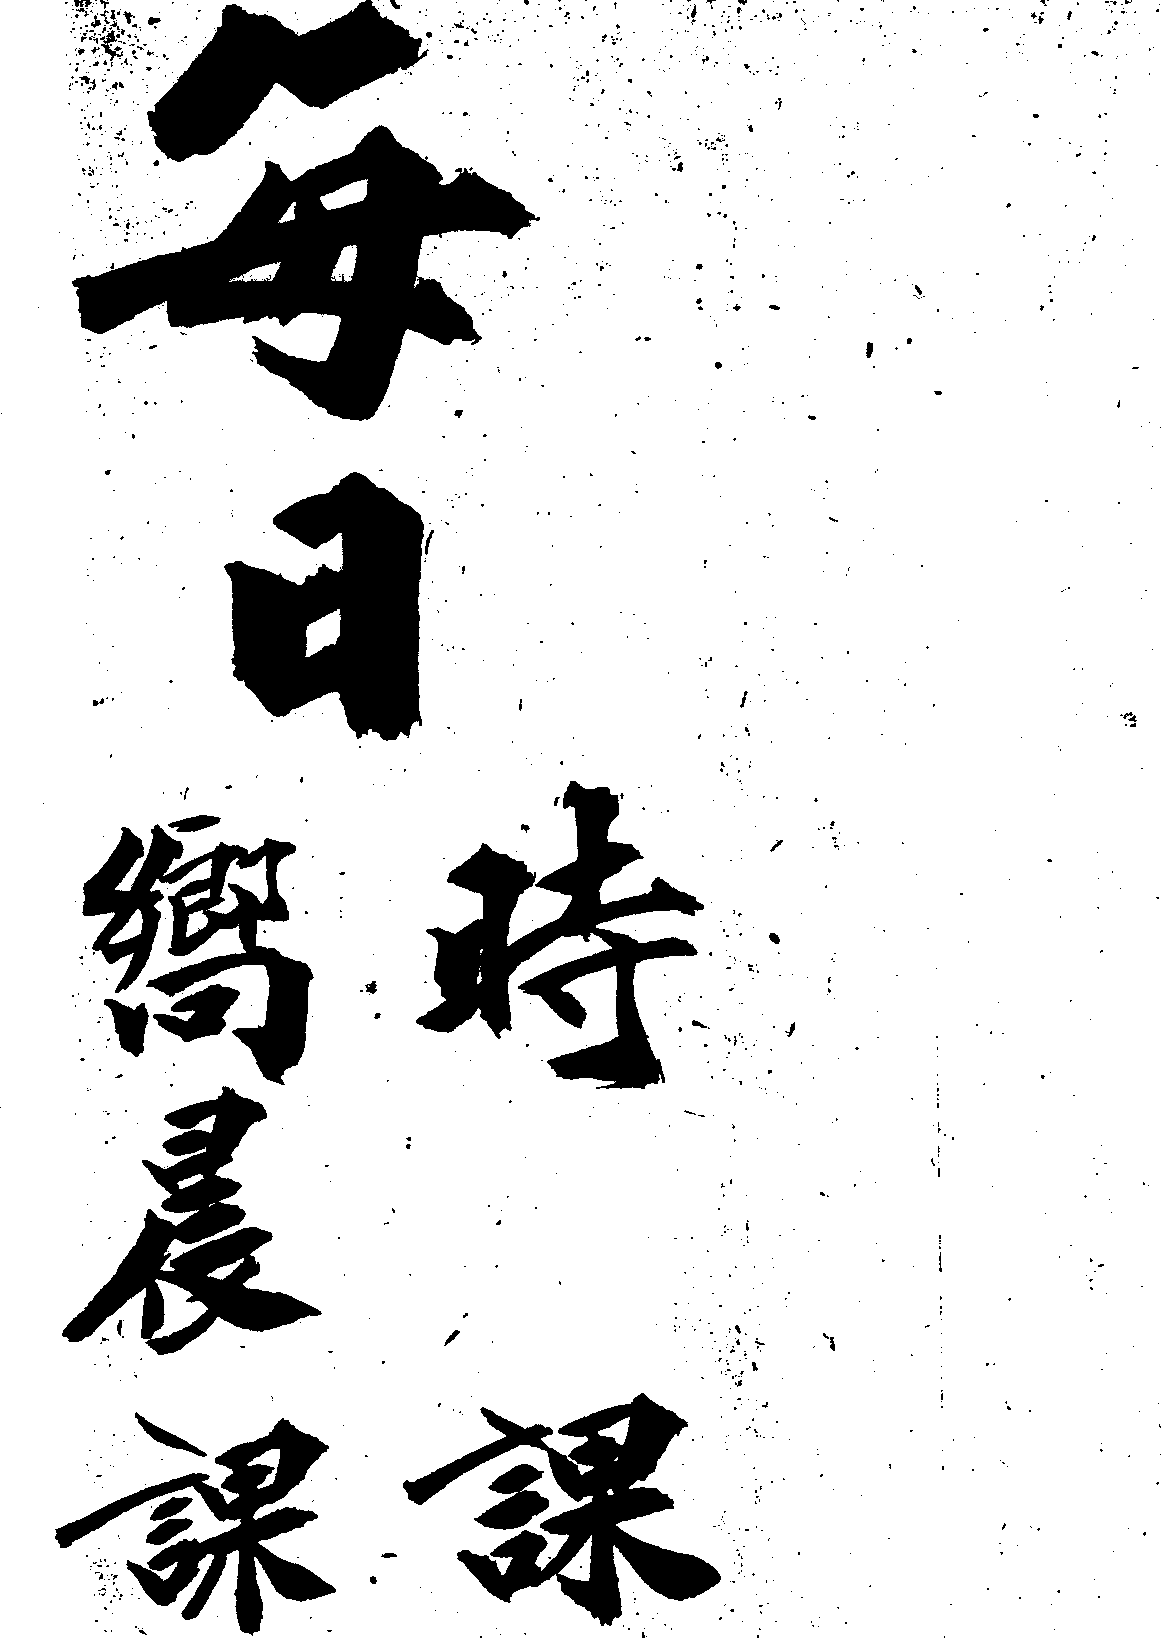 每日
時課
嚮晨課